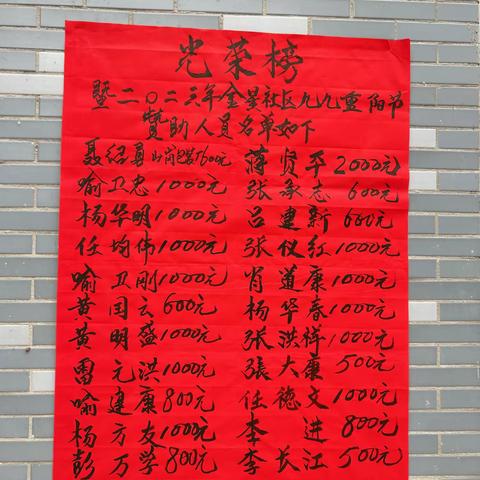 光荣榜
暨二〇二三年金星社区九九重阳节
赞助人员名单如下
聂绍勇 1600元 蒋贤平 2000元
喻卫忠 1000元 张承志 600元
杨华明 1000元 吕建新 600元
任均伟 1000元 张仪红 1000元
喻卫刚 1000元 肖道康 1000元
黄国云 600元 杨华春 1000元
黄明盛 1000元 张洪祥 1000元
雷元洪 1000元 張大康 500元
喻建康 800元 任德文 1000元
杨方友 1000元 李进 800元
彭万学 800元 李长江 500元